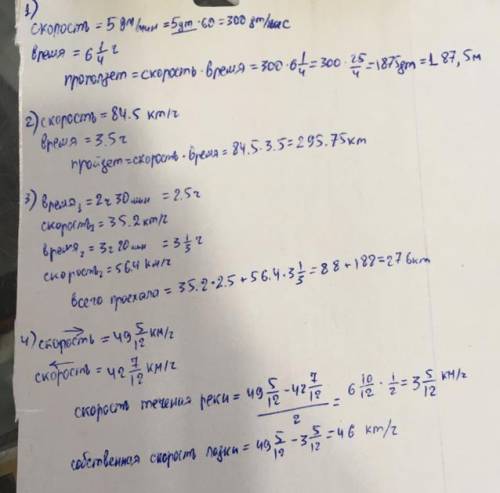 1)
скорость = 5 дм/мин = 5дm · 60 = 300 дm/час
время = 6 1/4 г
проползет = скорость · время = 300 · 6 1/4 = 300 · 25/4 = 1875дm = 187,5м
2) скорость = 84.5 km/г
время = 3.5 г
пройдет = скорость · время = 84.5 · 3.5 = 295.75km
3) время₁ = 2г 30мин = 2.5г
скорость₁ = 35.2 km/г
время₂ = 3г 20мин = 3 1/3 г
скорость₂ = 56.4 км/г
всего проехала = 35.2 · 2.5 + 56.4 · 3 1/3 = 88 + 188 = 276km
4) скорость → = 49 5/12 км/г
скорость ← = 42 7/12 км/г
скорость течения реки = (49 5/12 - 42 7/12)/2 = 6 10/12 · 1/2 = 3 5/12 км/г
собственная скорость лодки = 49 5/12 - 3 5/12 = 46 km/г